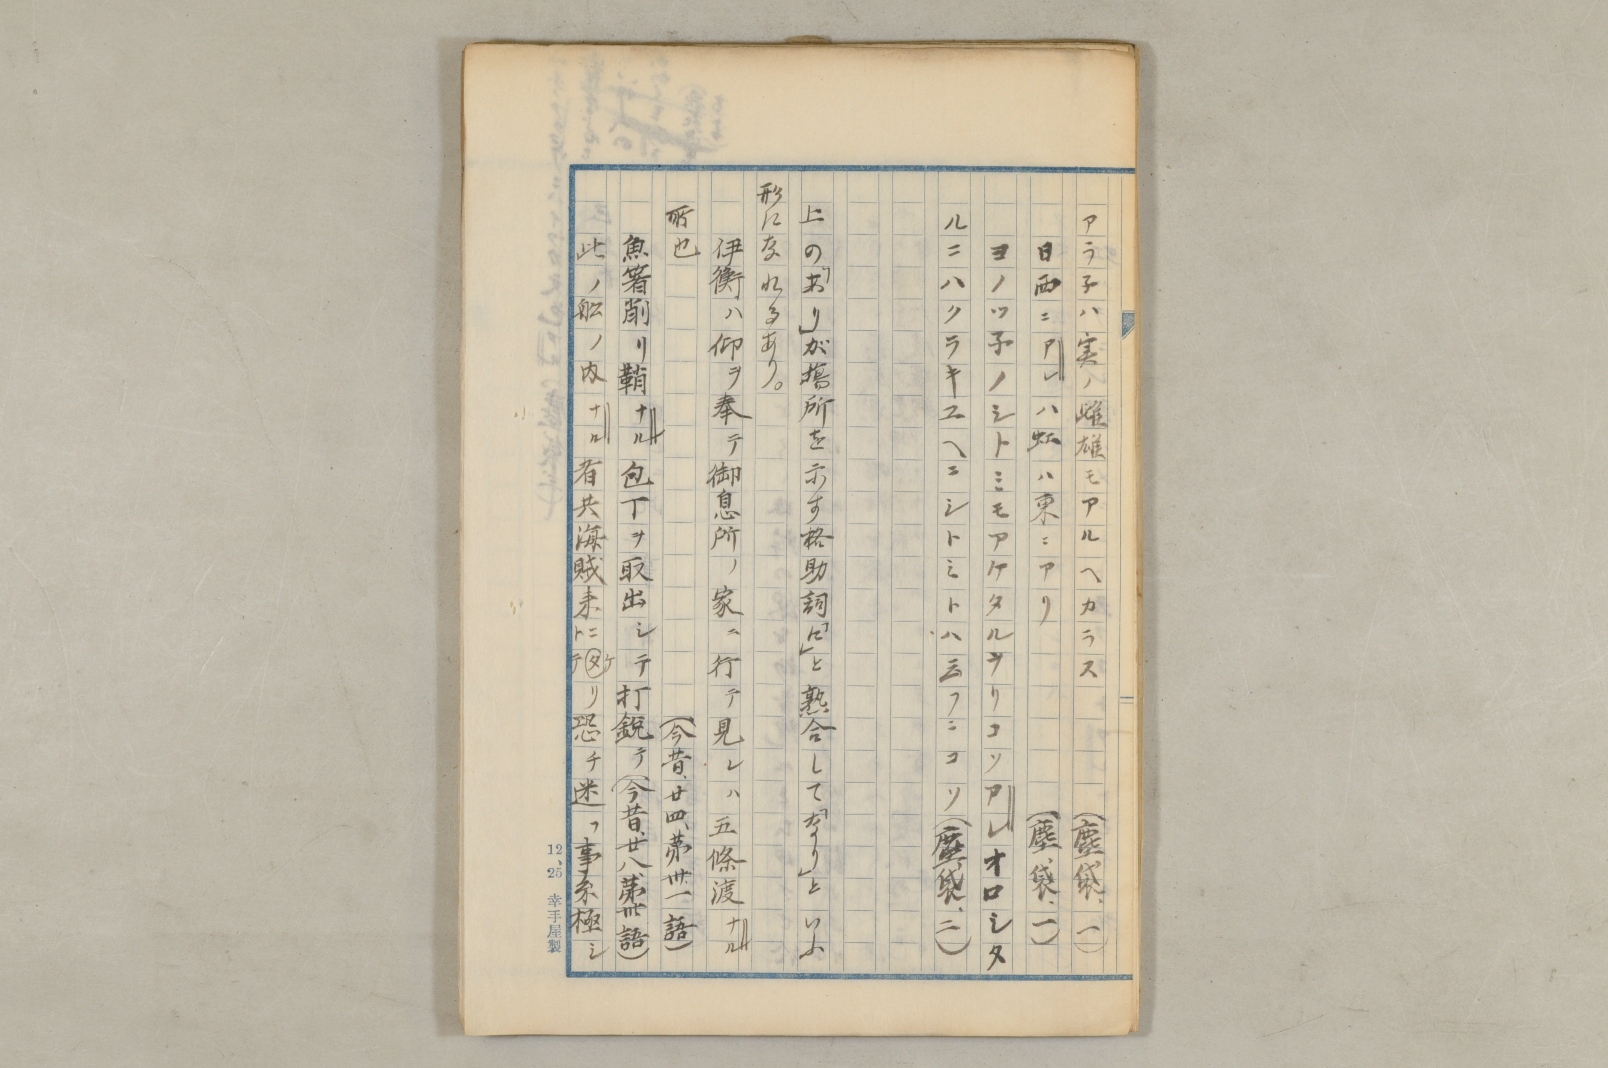 アラ子ハ実ノ雌雄モアルヘカラス　（塵袋、一）
日西ニアレハ虹ハ東ニアリ　（塵袋、一）
ヨノツ子ノシトミモアケタルヲリコソアレオロシタ
ルニハクラキユヘニシトミトハ云フニコソ（塵袋、二）
上の「あり」が場所を示す格助詞「に」と熟合して「なり」といふ
形になれるあり。
伊衡ハ仰ヲ奉テ御息所ノ家ニ行テ見レハ五條渡ナル
所也　（今昔、廿四、第卅一語）
魚箸削リ鞘ナル包丁ヲ取出シテ打鋭テ（今昔、廿八、第卅語）
此ノ船ノ内ナル者共海賊来ニ
タリ恐チ迷フ事糸極シ
12、25　幸手屋製